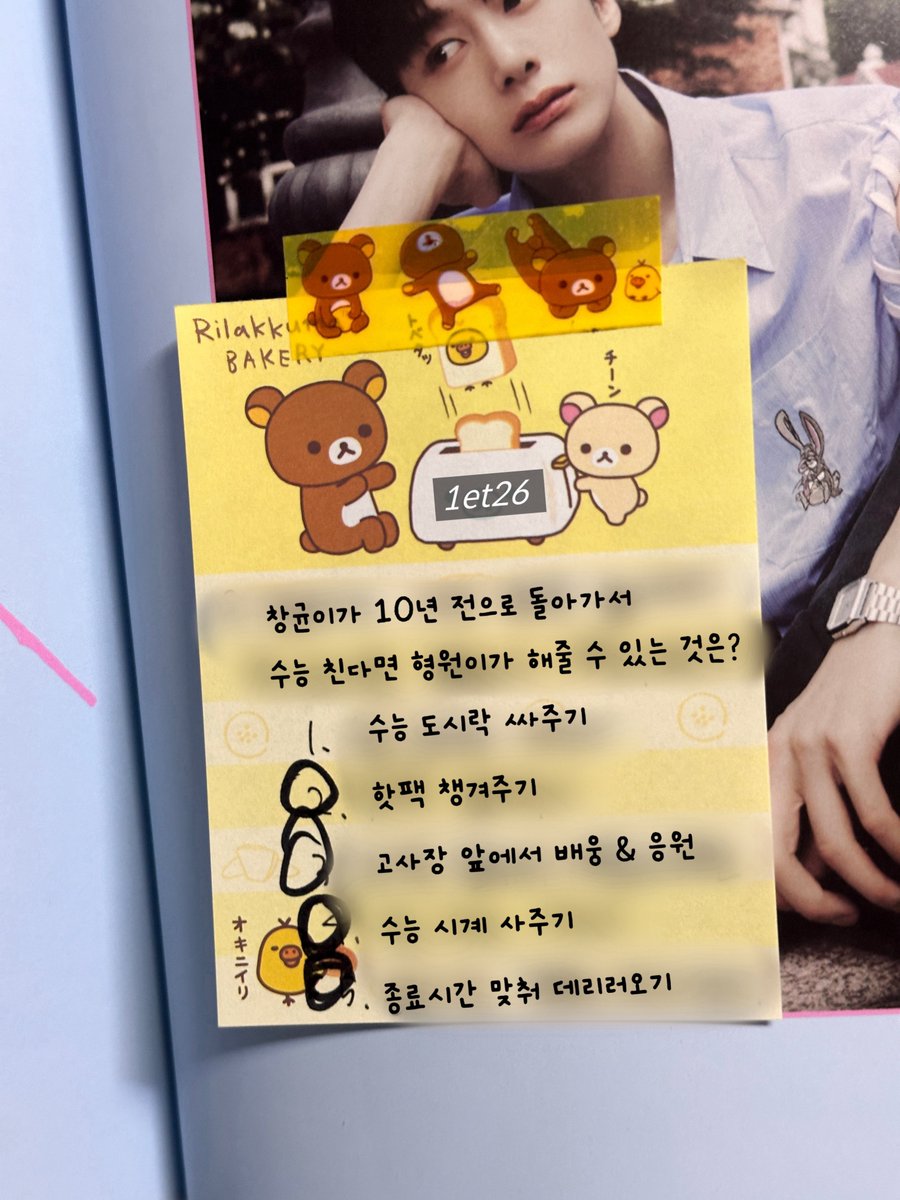 Rilakku
BAKERY
チーン
1et26
창균이가 10년 전으로 돌아가서
수능 친다면 형원이가 해줄 수 있는 것은?
1. 수능 도시락 싸주기
핫팩 챙겨주기
고사장 앞에서 배웅 & 응원
수능 시계 사주기
종료시간 맞춰 데리러오기
オキニイリ